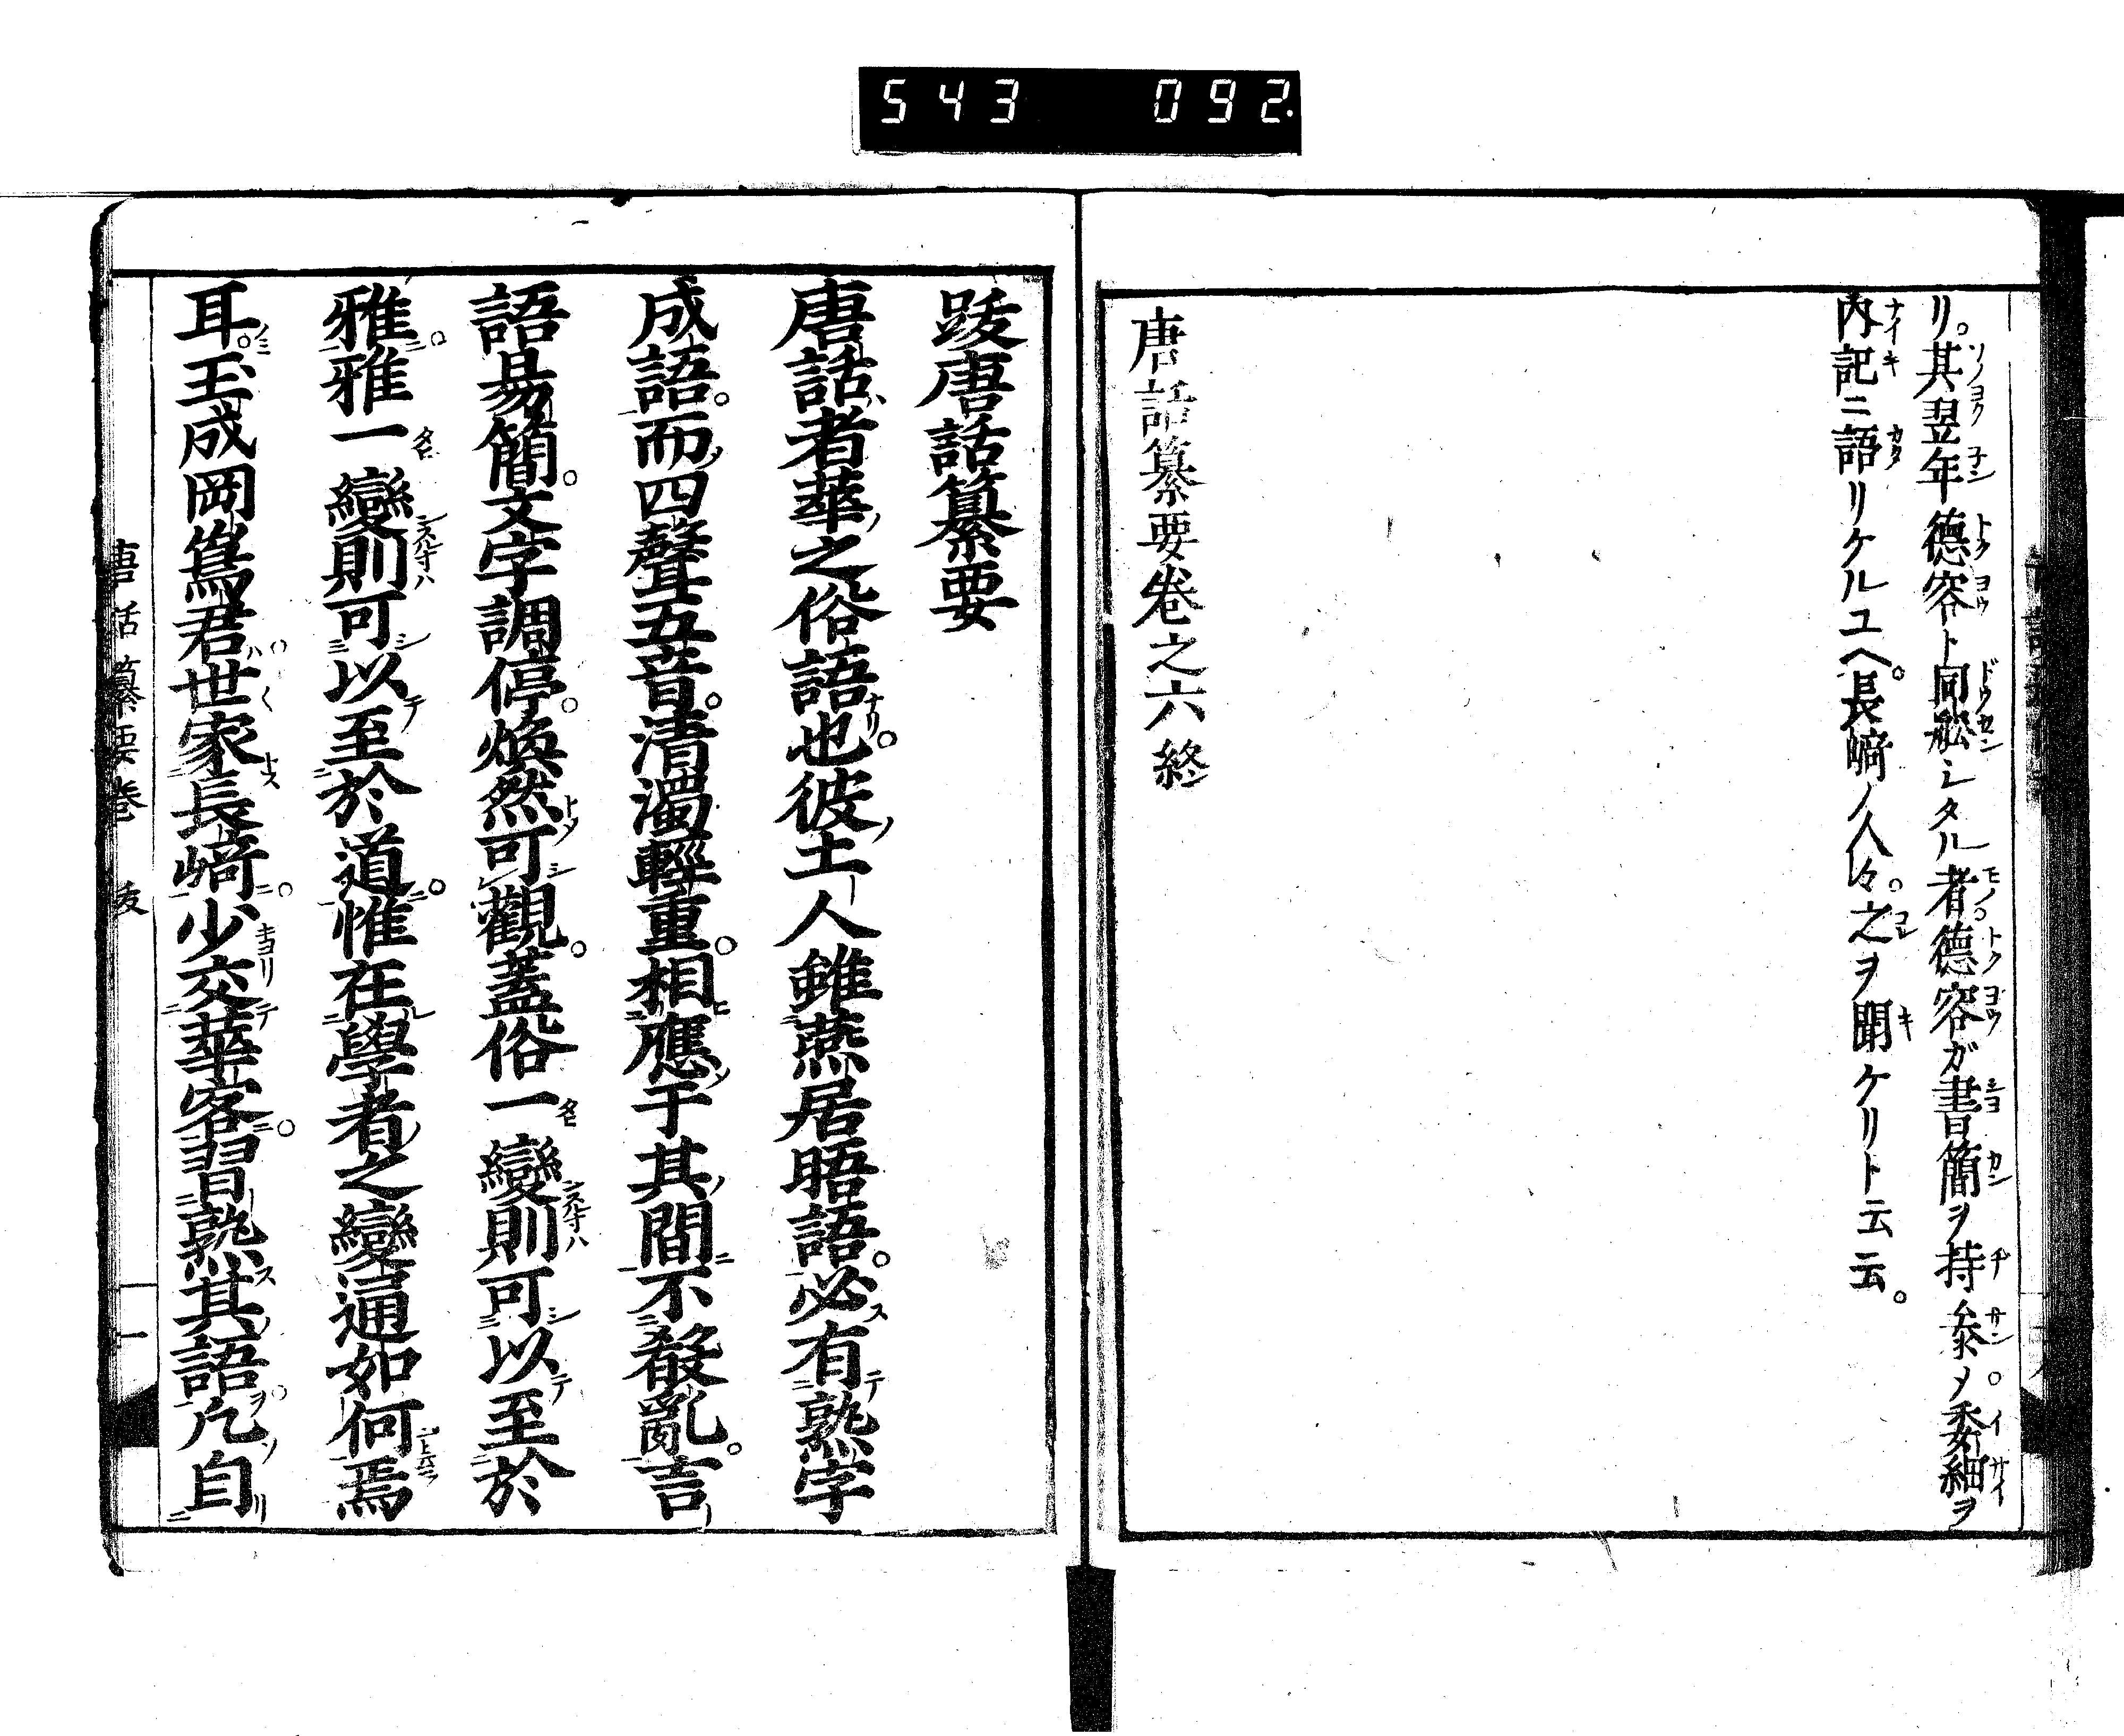 543 092.
リ。其翌年德容ト同舩シタル者。德容ガ書簡ヲ持參〆。委細ヲ
内記ニ語リケルユヘ。長﨑ノ人々。之ヲ聞ケリト云云。
唐話纂要卷之六終
跋唐話纂要
唐話者華之俗語也。彼土人雖燕居晤語。必有熟字
成語。而四聲五音。清濁輕重。相應于其間不殽亂。言
語易簡。文字調停。煥然可觀。蓋俗一變則可以至於
雅。雅一變則可以至於道。惟在學者之變通如何焉
耳。玉成岡嶌君世家長﨑。少交華客。習熟其語。凢自
唐話纂要卷 跋 一